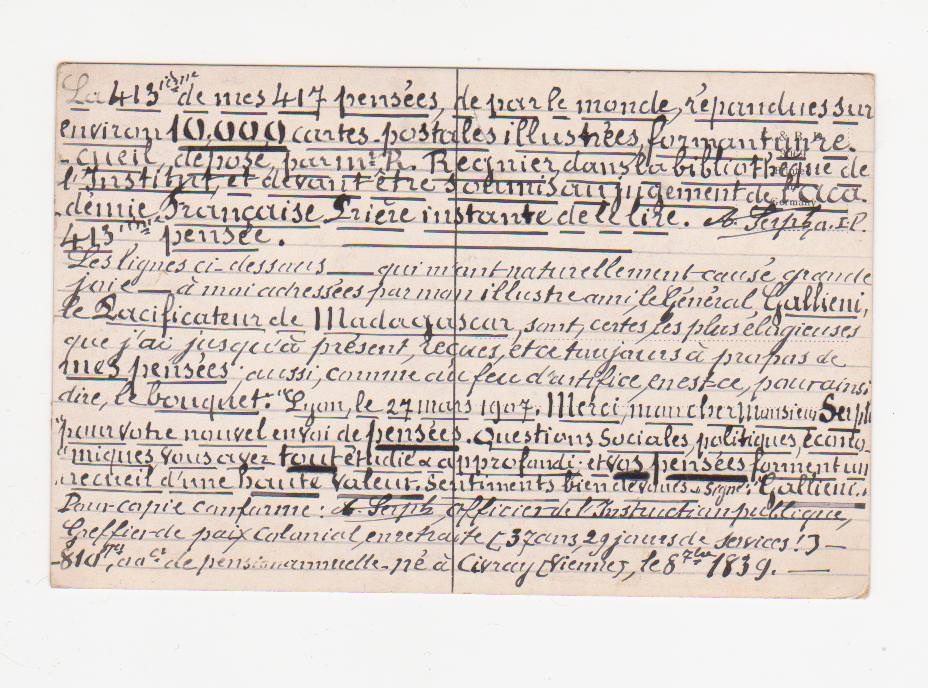 La 413ième de mes 417 pensées, de par le monde, répandues sur
environ 10,000 cartes-postales illustrées, formant un re-
-cueil, déposé, par mr. R. Regnier dans la bibliothèque de
l'Institut, et devant être soumis au jugement de l'aca-
démie Française Prière instante de le lire. A. Serph, a.I.P.
413ième pensée.
Les lignes ci-dessous — qui m'ont naturellement causé grande
joie — à moi adressées par mon illustre ami, le Général Gallieni,
le Pacificateur de Madagascar, sont, certes, les plus élogieuses
que j'ai jusqu'à présent, reçues, et ce toujours à propos de
mes pensées; aussi, comme au feu d'artifice, en est-ce, pour ainsi
dire, le bouquet: "Lyon, le 27 mars 1907. Merci, mon cher Monsieur Serph
"pour votre nouvel envoi de pensées. Questions Sociales, politiques, écono-
"miques, vous avez tout étudié & approfondi; et vos pensées forment un
"recueil d'une haute valeur. Sentiments bien dévoués." Signé: "Gallieni."
Pour copie conforme: A. Serph, Officier de l'Instruction publique,
Greffier de paix Colonial, en retraite [37 ans, 29 jours de Services!] —
-810 de pension annuelle - né à Civray [Vienne], le 8 1839. —
Germany